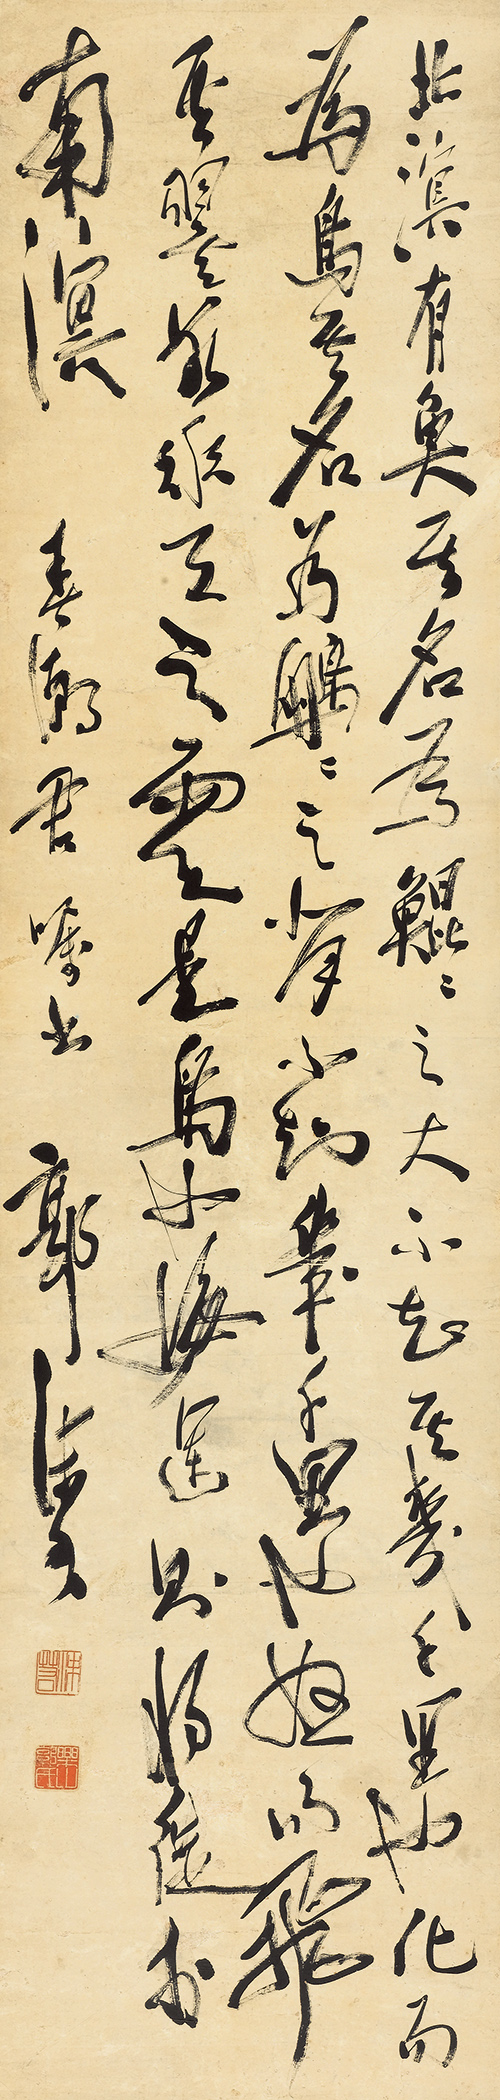 北溟有魚其名為鯤〻之大不知其幾千里也化而
為鳥其名為鵬〻之背不知幾千里也怒而飛
其翼若垂天之雲是鳥也海運則將徙於
南溟
春潮君囑書
郭沫若
沫若